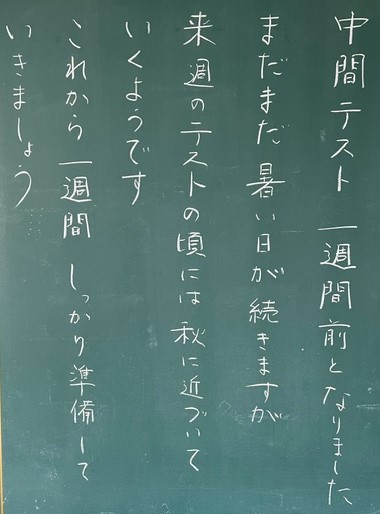 中間テスト一週間前となりました
まだまだ暑い日が続きますが
来週のテストの頃には秋に近づいて
いくようです
これから一週間しっかり準備して
いきましょう